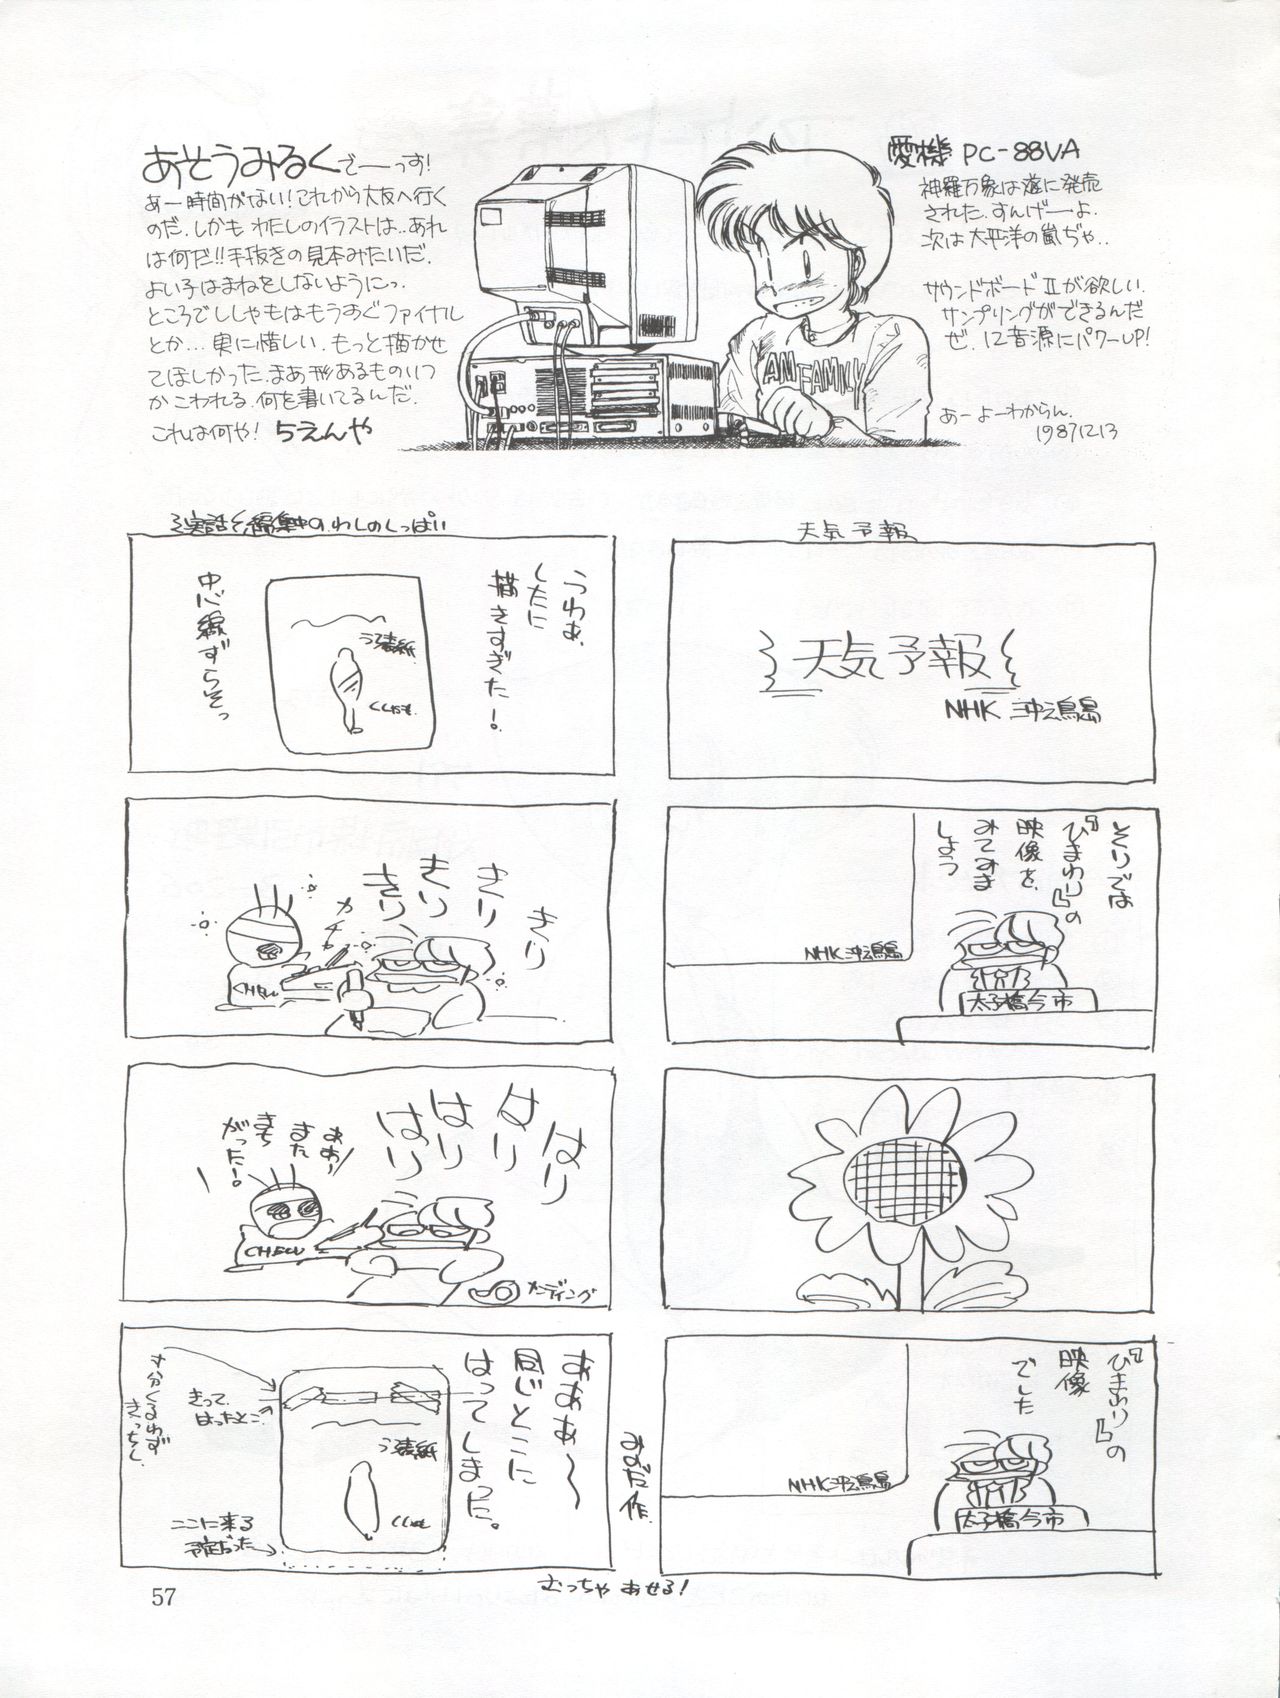 あそうみるくでーっす!
あー時間がない!これから大友へ行く
のだ.しかもわたしのイラストは..あれ
は何だ!!手抜きの見本みたいだ.
よい子はまねをしないようにっ.
ところでししゃもはもうすぐファイナル
とか…実に惜しい.もっと描かせ
てほしかった.まあ形あるものいつ
かこわれる.何を書いてるんだ.
これは何や! ちえんや
愛機 PC-88VA
神羅万象は遂に発売
された.すんげーよ.
次は太平洋の嵐ぢゃ..
サウンドボードⅡが欲しい.
サンプリングができるんだ
ぜ.12音源にパワーUP!
あーよーわからん.
19871213
AM FAMILY
天気予報
天気予報
NHK
そりでは
『ひまわり』の
映像を
みてみま
しょう
NHK
太子橋今市
『ひまわり』の
映像
でした
NHK
太子橋今市
実話 編集中のわしのしっぱい
うわぁ.
したに
描きすぎた!
中心線ずらそっ
う表紙
ししゃも
きり
きり
きり
きり
カチャカチャ
はり
はり
はり
はり
ああ〜
また
まち
がった!
CHECU
メーディング
あああ〜
同じとこに
はってしまった。
う表紙
ししゃも
きって.
はったとこ
寸分くるわず
きっちし.
ここに来る
予定だった→
みずた作.
むっちゃあせる!
57